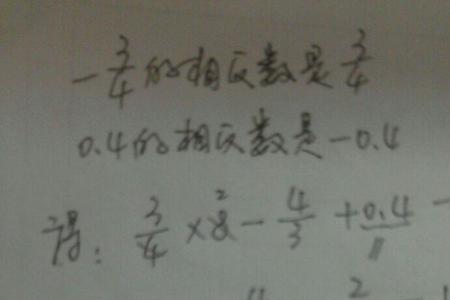 -3/4的相反数是3/4
0.4的相反数是-0.4
得: 3/4 × 8 2 - 4/3 + 0.4 -
2